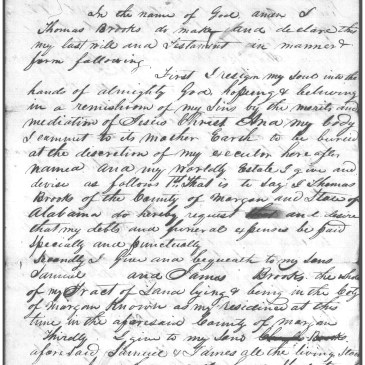 In the name of God amen I
Thomas Brooks do make and declare this
my last will and Testament in manner &
form following
First I resign my Soul into the
hands of almighty God hoping & believing
in a remission of my Sins by the merits and
mediation of Jesus Christ And my body
I commit to its mother Earth to be buried
at the discretion of my executor here after
named And my Worldly Estate I give and
devise as follows 1st That is to say I Thomas
Brooks of the County of Morgan and State of
Alabama do hereby request and desire
that my debts and funeral expenses be paid
specially and punctually
Secondly I give and bequeath to my sons
Samuel and James Brooks the
of my Tract of Land lying & being in the Coty
of Morgan Known as my residence at this
time in the aforesaid County of Morgan
Thirdly I give to my Sons Brooks
aforesaid Samuel & James all the living Stock